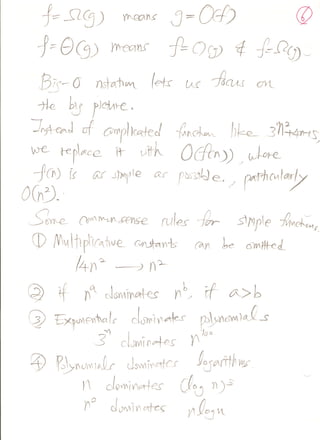 f = Ω(g) means g = O(f)
6
f = Θ(g) means f = O(g) & f = Ω(g).
Big-O notation lets us focus on
the big picture.
Instead of complicated function like 3n²+4n+5,
we replace it with O(f(n)), where
f(n) is as simple as possible., particularly
O(n²).
Some common sense rules for simple functions.
① Multiplicative constants can be omitted
14n² → n²
② if nᵃ dominates nᵇ, if a>b
③ Exponentials dominates polynomials
3ⁿ dominates n
④ Polynomials dominates logarithms
n dominates (log n)
n² dominates n log n